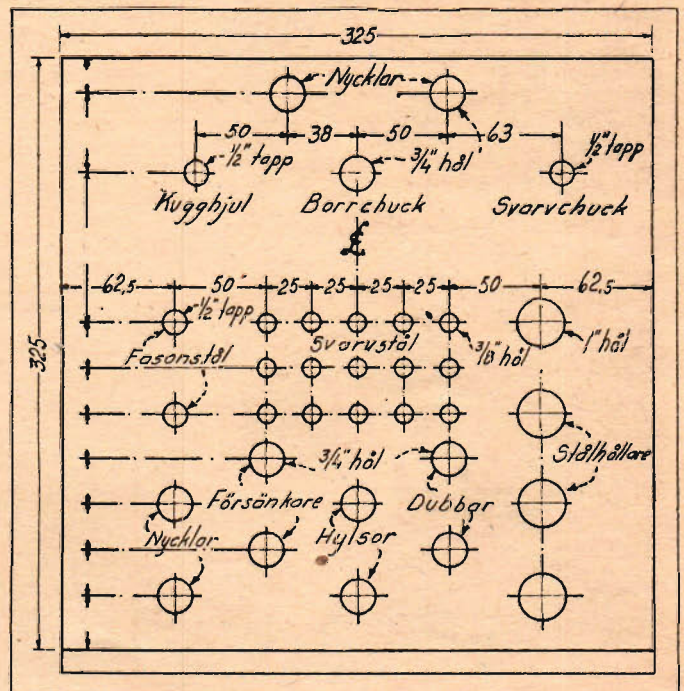 325
Nycklar
50 38 50 63
1/2" tapp
3/4" hål
1/2" tapp
Kugghjul Borrchuck Svarvchuck
℄
62,5 50 25 25 25 25 50 62,5
1/2" tapp
Svarvstål
3/8" hål
1" hål
Fasonstål
325
3/4" hål
Stålhållare
Försänkare Dubbar
Nycklar Hylsor